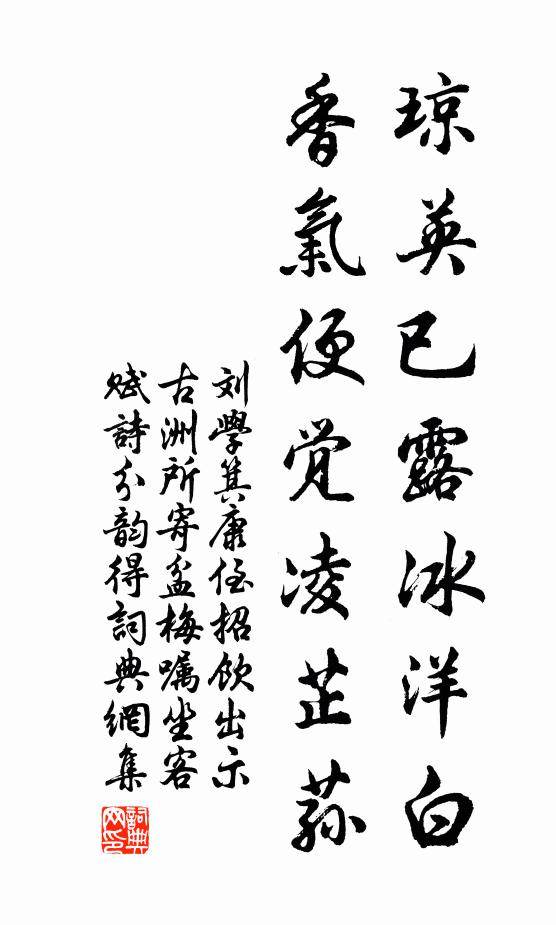 琼英已露冰洋白
香氣便觉凌芷荪
刘學箕康侄招飲出示
古洲所寄盆梅嘱坐客
赋詩分韵得詞典網集
詞典
网印